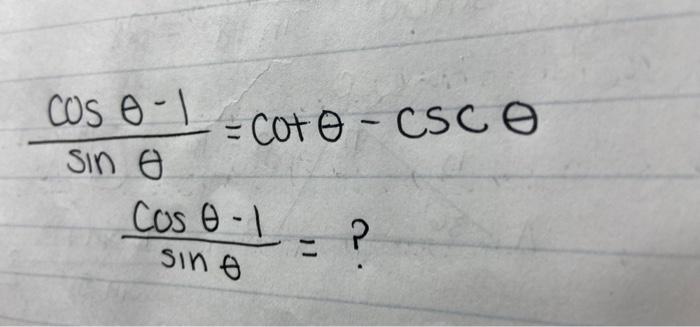 cos θ - 1 / sin θ = cot θ - csc θ
cos θ - 1 / sin θ = ?